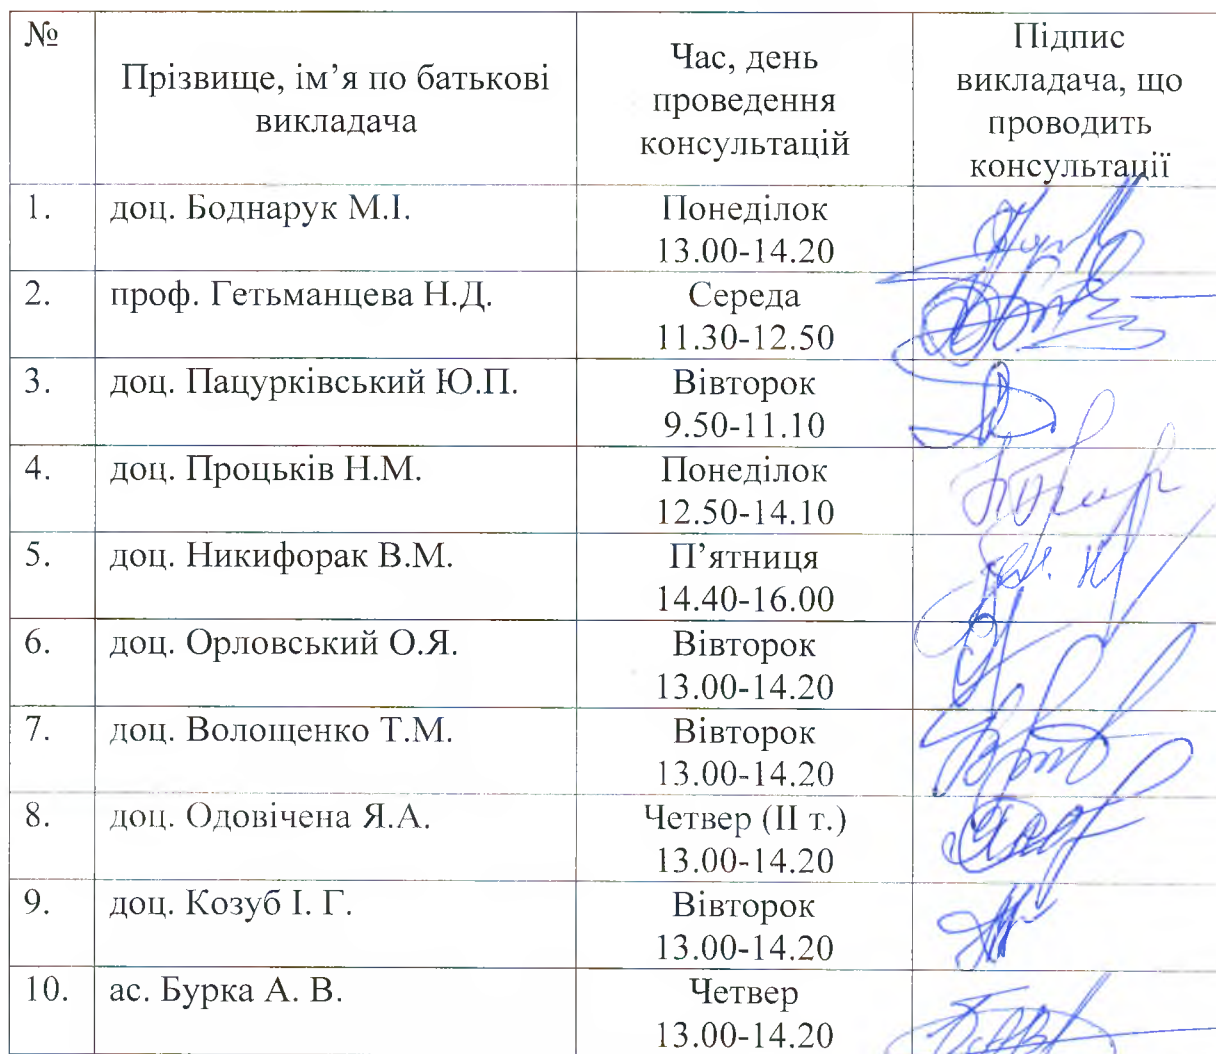 №
Прізвище, ім’я по батькові
викладача
Час, день
проведення
консультацій
Підпис
викладача, що
проводить
консультації
1. доц. Боднарук М.І. Понеділок
13.00-14.20
2. проф. Гетьманцева Н.Д. Середа
11.30-12.50
3. доц. Пацурківський Ю.П. Вівторок
9.50-11.10
4. доц. Процьків Н.М. Понеділок
12.50-14.10
5. доц. Никифорак В.М. П’ятниця
14.40-16.00
6. доц. Орловський О.Я. Вівторок
13.00-14.20
7. доц. Волощенко Т.М. Вівторок
13.00-14.20
8. доц. Одовічена Я.А. Четвер (ІІ т.)
13.00-14.20
9. доц. Козуб І. Г. Вівторок
13.00-14.20
10. ас. Бурка А. В. Четвер
13.00-14.20